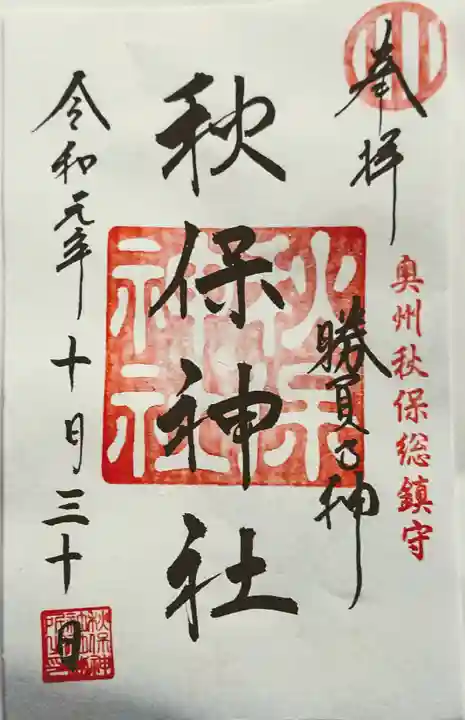 奉拝
奥州秋保総鎮守
勝負の神
秋保神社
秋保
神社
令和元年十月三十日